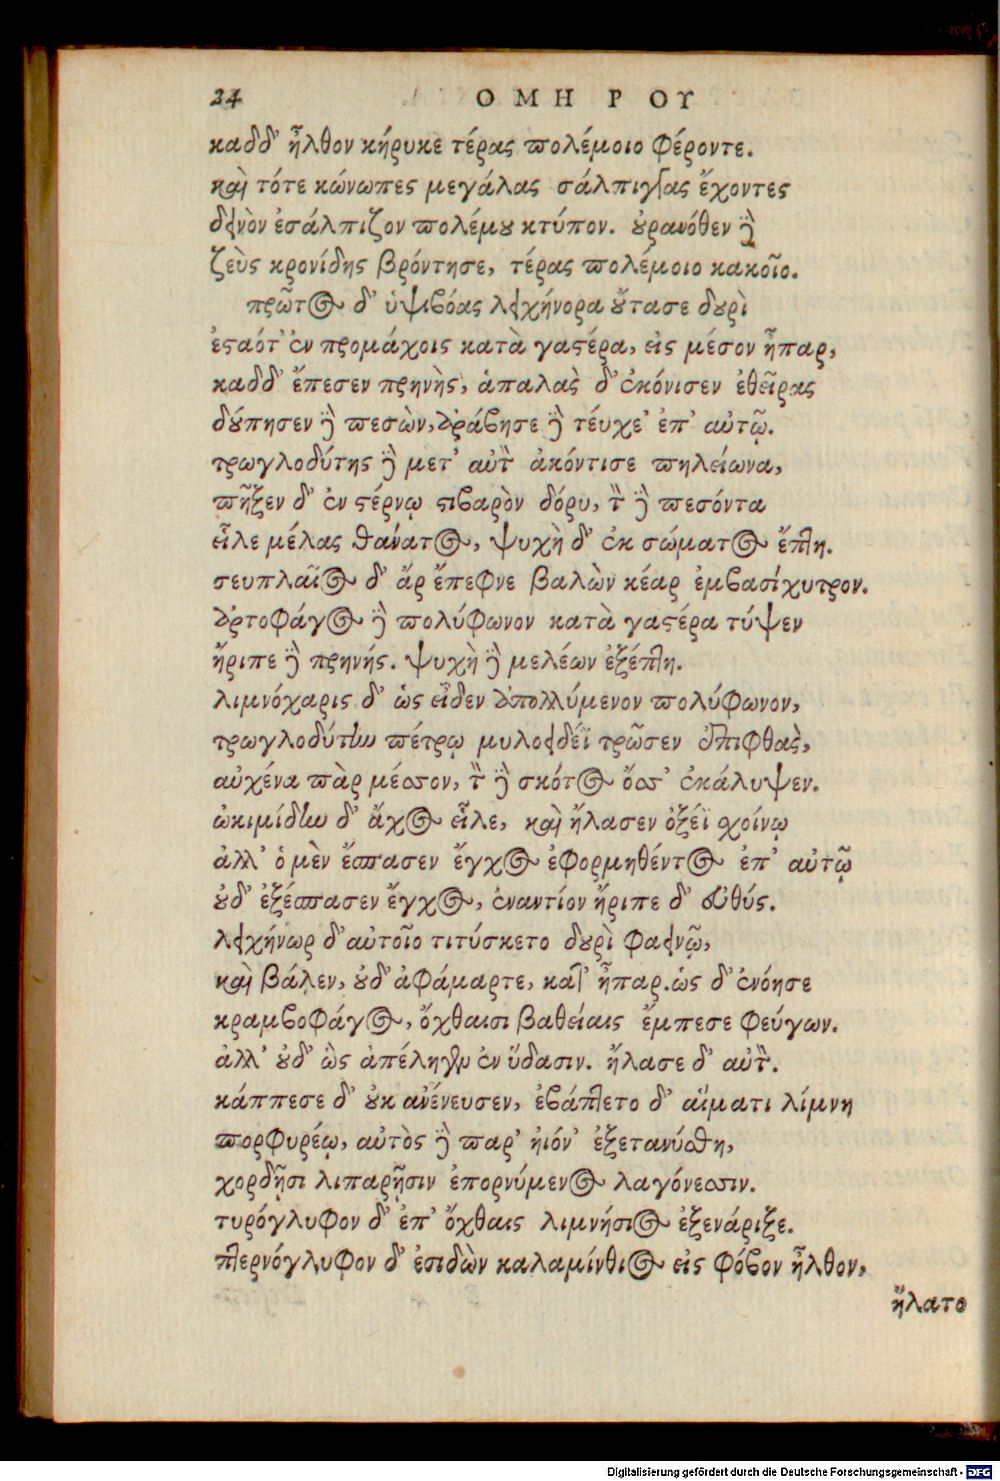 24 ΟΜΗΡΟΥ
καδδ' ἦλθον κήρυκε τέρας πολέμοιο φέροντε.
καὶ τότε κώνωπες μεγάλας σάλπιγγας ἔχοντες
δεινὸν ἐσάλπιζον πολέμου κτύπον. οὐρανόθεν δὲ
ζεὺς κρονίδης βρόντησε, τέρας πολέμοιο κακοῖο.
πρῶτος δ' ὑψιβόας λειχήνορα οὔτασε δουρὶ
ἑσταότ' ἐν προμάχοις κατὰ γαστέρα, εἰς μέσον ἧπαρ,
καδδ' ἔπεσεν πρηνὴς, ἁπαλὰς δ' ἐκόνισεν ἐθείρας
δούπησεν δὲ πεσὼν, ἀράβησε δὲ τέυχε' ἐπ' αὐτῷ.
τρωγλοδύτης δὲ μετ' αὐτὸν ἀκόντισε πηλείωνα,
πῆξεν δ' ἐν στέρνῳ στιβαρὸν δόρυ, τὸν δὲ πεσόντα
εἷλε μέλας θάνατος, ψυχὴ δ' ἐκ σώματος ἔπτη.
σευτλαῖος δ' ἄρ ἔπεφνε βαλὼν κέαρ ἐμβασίχυτρον.
ἀρτοφάγος δὲ πολύφωνον κατὰ γαστέρα τύψεν
ἤριπε δὲ πρηνής. ψυχὴ δὲ μελέων ἐξέπτη.
λιμνόχαρις δ' ὡς εἶδεν ἀπολλύμενον πολύφωνον,
τρωγλοδύτην πέτρῳ μυλοειδέϊ τρῶσεν ἐπιφθὰς,
αὐχένα πὰρ μέσσον, τὸν δὲ σκότος ὄσσ' ἐκάλυψεν.
ὠκιμίδην δ' ἄχος εἷλε, καὶ ἤλασεν ὀξέϊ σχοίνῳ
ἀλλ' ὁ μὲν ἔσπασεν ἔγχος ἐφορμηθέντος ἐπ' αὐτῷ
οὐδ' ἐξέσπασεν ἔγχος, ἐναντίον ἤριπε δ' εὐθύς.
λειχήνωρ δ' αὐτοῖο τιτύσκετο δουρὶ φαεινῷ,
καὶ βάλεν, οὐδ' ἀφάμαρτε, καθ' ἧπαρ. ὡς δ' ἐνόησε
κραμβοφάγος, ὄχθαισι βαθείαις ἔμπεσε φεύγων.
ἀλλ' οὐδ' ὣς ἀπέληγεν ἐν ὕδασιν. ἤλασε δ' αὐτὸν.
κάππεσε δ' οὐκ ἀνένευσεν, ἐβάπτετο δ' αἵματι λίμνη
πορφυρέῳ, αὐτὸς δὲ παρ' ἠιόν' ἐξετανύσθη,
χορδῇσι λιπαρῇσιν ἐπορνύμενος λαγόνεσσιν.
τυρόγλυφον δ' ἐπ' ὄχθαις λιμνήσιος ἐξενάριξε.
πτερνόγλυφον δ' ἐσιδὼν καλαμίνθιος εἰς φόβον ἦλθον,
ἥλατο
Digitalisierung gefördert durch die Deutsche Forschungsgemeinschaft - DFG